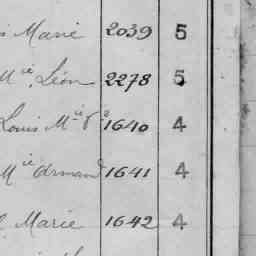 Marie 2039 5
Mie Léon 2278 5
Louis Mie 1640 4
Mie Armand 1641 4
Marie 1642 4